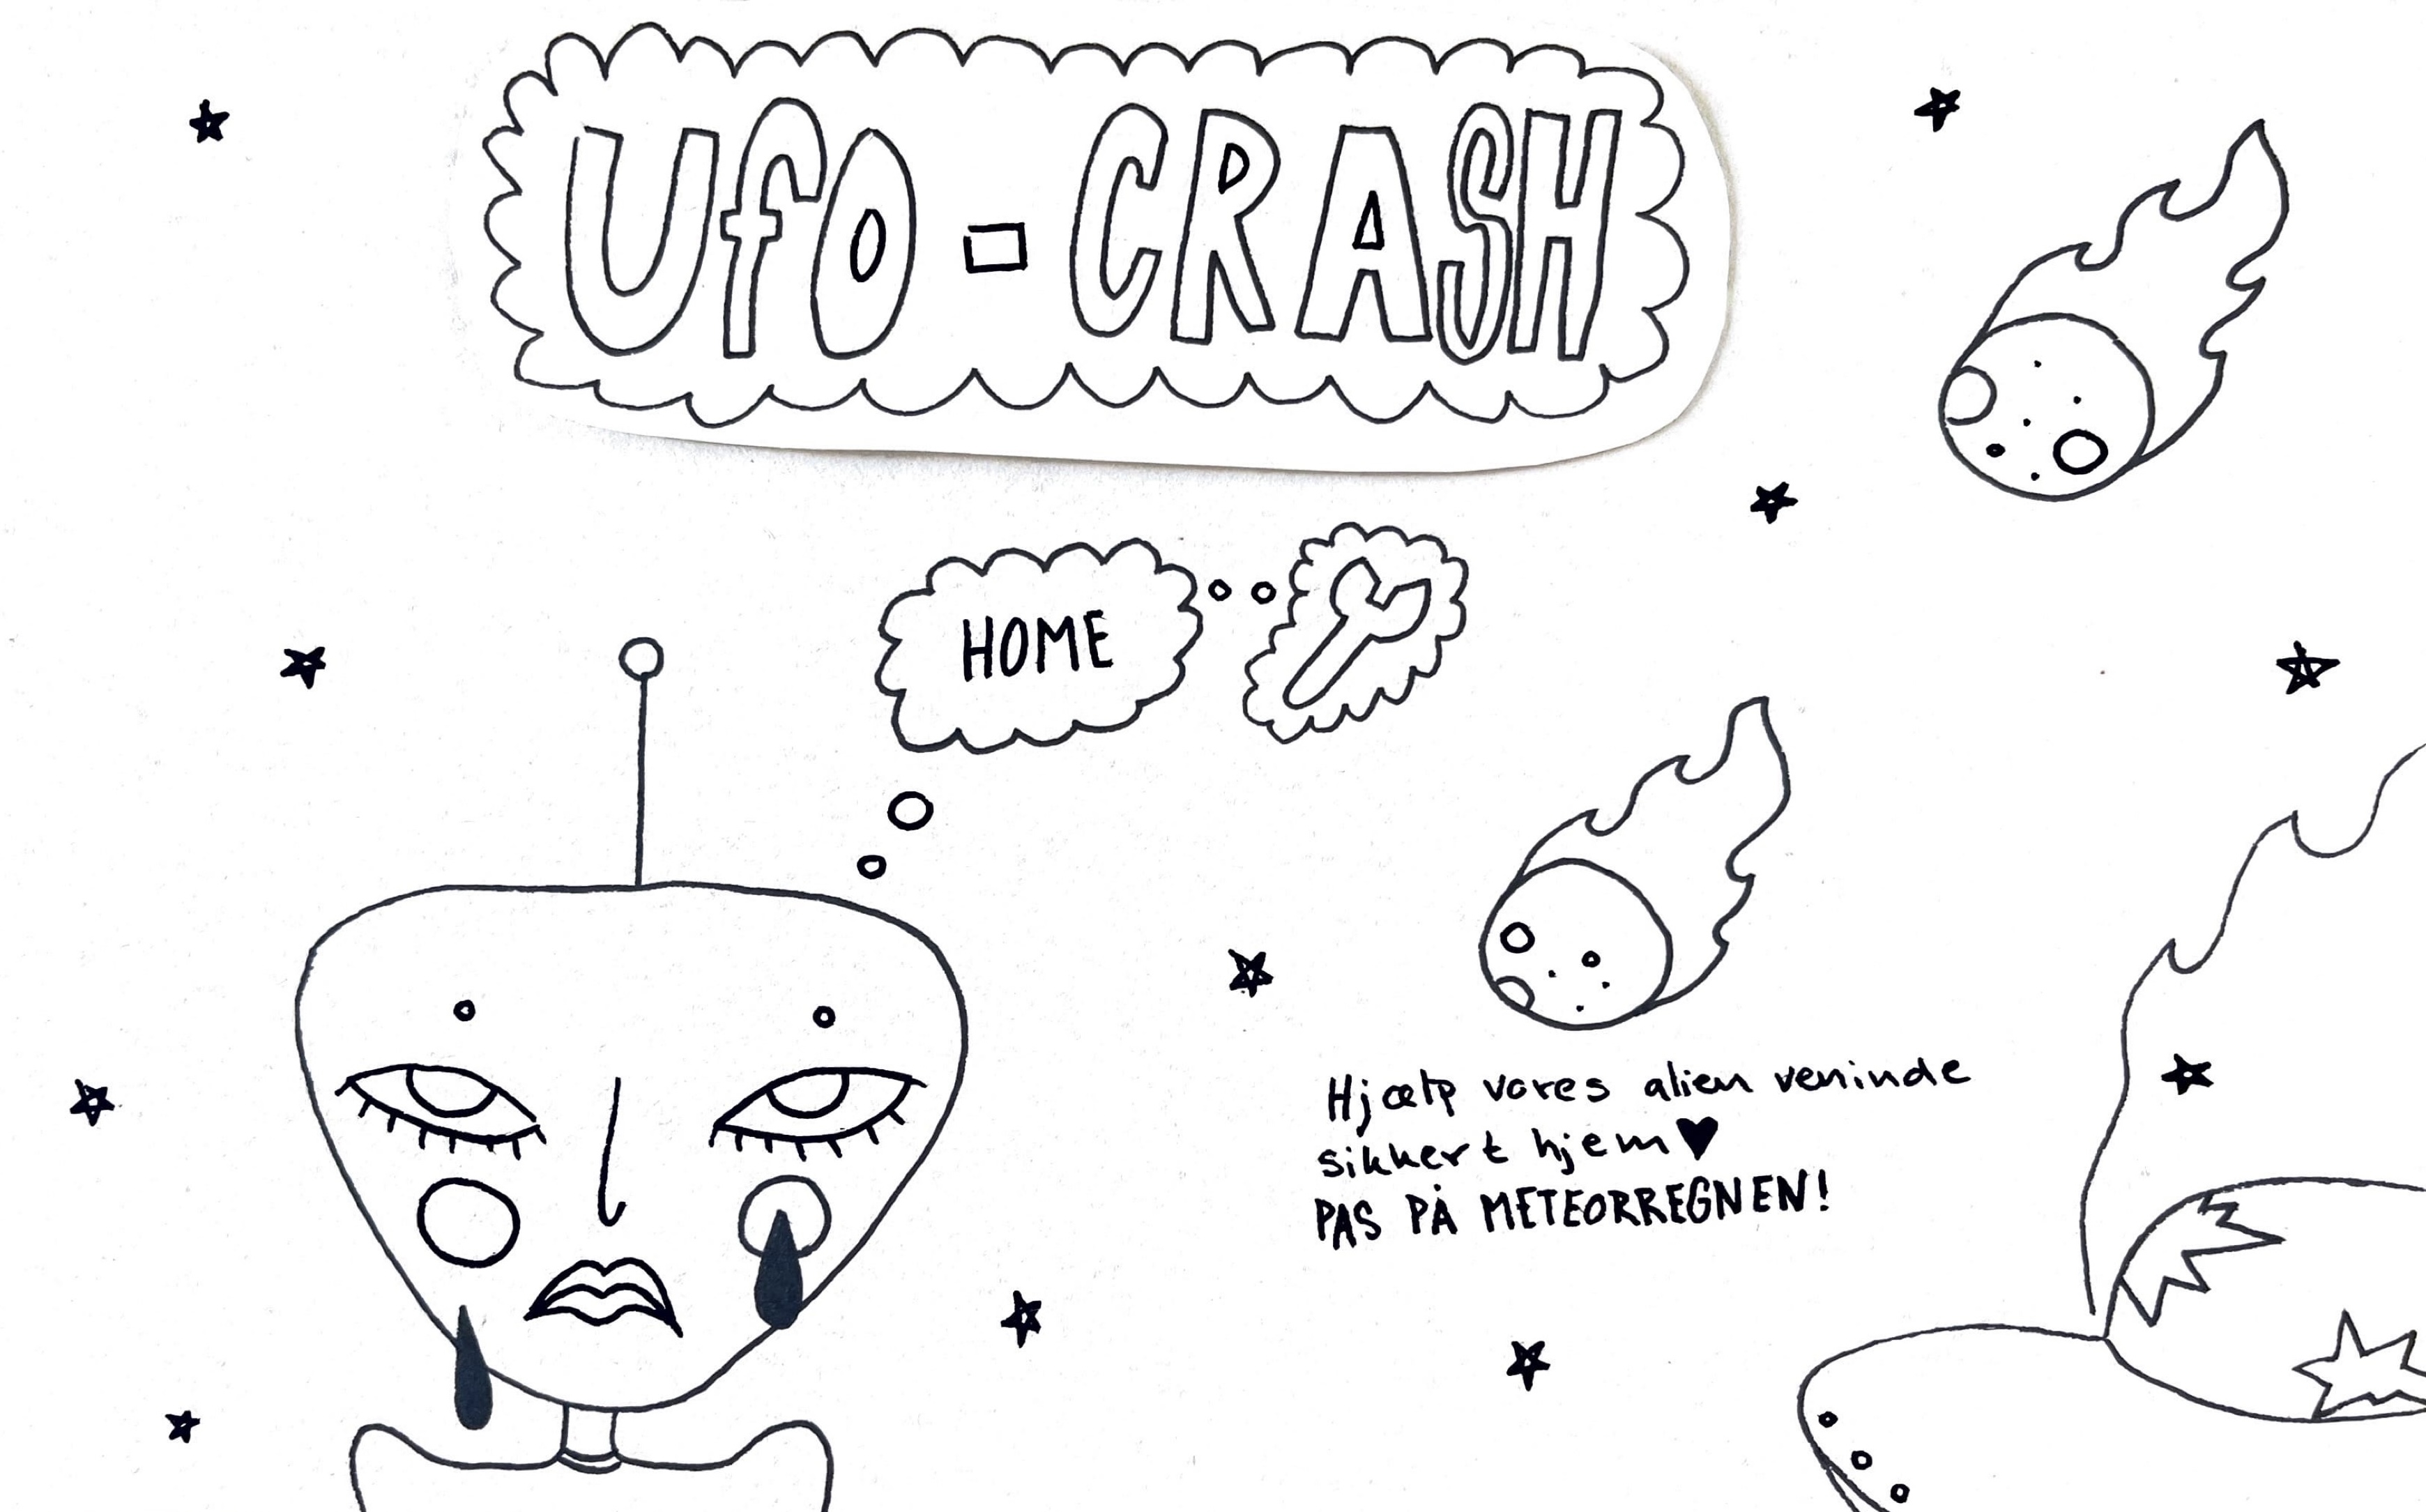 UfO - CRASH
HOME
Hjælp vores alien veninde
sikkert hjem♥
PAS PÅ METEORREGNEN!